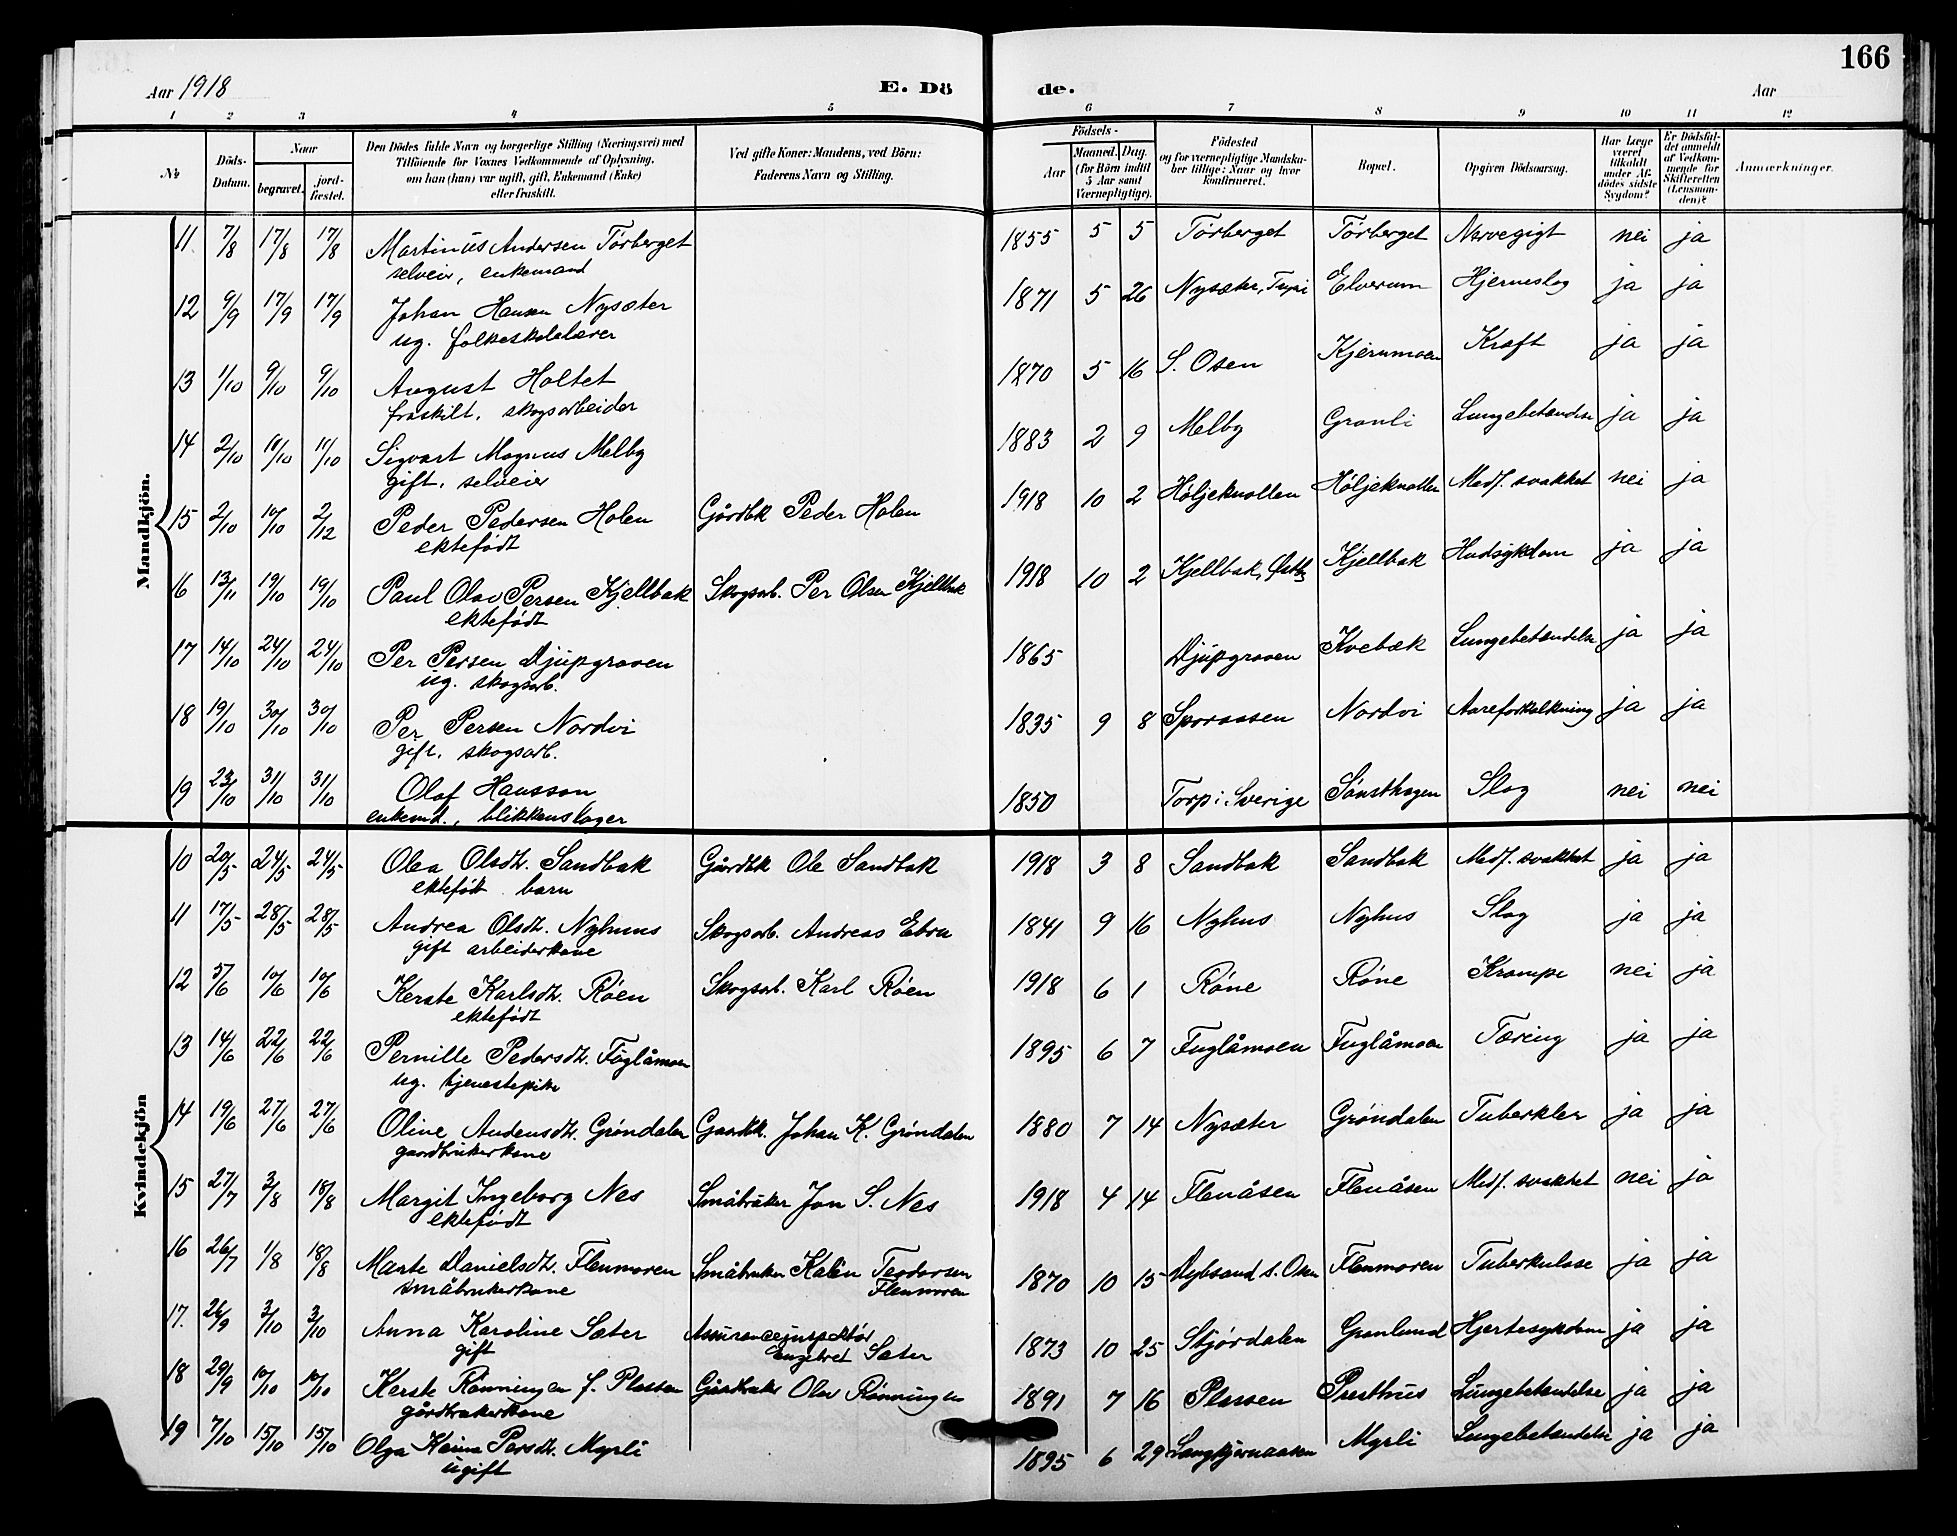 166
Aar 1918 E. Dö de. Aar
1 2 3 4 5 6 7 8 9 10 11 12
№
Döds-Datum.
Naar
begravet.
jord-fæstet.
Den Dödes fulde Navn og borgerlige Stilling (Næringsvei) med
Tilföiende for Voxnes Vedkommende af Oplysning.
om han (hun) var ugift, gift, Enkemand (Enke)
eller fraskilt.
Ved gifte Koner: Mandens, ved Börn:
Faderens Navn og Stilling.
Födsels-
Aar
Maaned. Dag.
(for Börn indtil
5 Aar samt
Værnepligtige).
Födested
og for værnepligtige Mandska-
ber tillige: Naar og hvor
konfirmeret.
Bopæl.
Opgiven Dödsaarsag.
Har Læge
været
tilkaldt
under Af-
dödes sidste
Sygdom?
Er Dödsfal-
det anmeldt
af Vedkom-
mende for
Skifteretten
(Lensman-
den)?
Anmærkninger.
Mandkjön.
11. 7/8 17/8 17/8 Martinus Andersen Törberget 1855 5 5 Törberget Törberget Nervegigt nei ja
selveier, enkemand
12 9/9 17/9 17/9 Johan Hansen Nysæter 1871 5 26 Nysæter, Trysi Elverum Hjerneslag ja ja
ug. folkeskolelærer
13 1/10 9/10 9/10 August Holtet 1870 5 16 S. Osen Kjernmoen Kræft ja ja
fraskilt, skogsarbeider
14 2/10 11/10 11/10 Sigvart Magnus Melby 1883 2 9 Melby Granli Lungebetændelse ja ja
gift, selveier
15 2/10 10/10 2/12 Peder Pedersen Holen Gårdbk Peder Holen 1918 10 2 Höljeknollen Höljeknollen Medf. svakhet nei ja
ektefödt
16 13/11 19/10 19/10 Paul Olav Persen Kjellbak Skogsarb. Per Olsen Kjellbak 1918 10 2 Kjellbak, Kjellbak Hudsykdom ja ja
ektefödt
17 14/10 24/10 24/10 Per Persen Djupgraven 1865 Djupgraven Kvebæk Lungebetændelse ja ja
ug. skogsarb.
18 19/10 30/10 30/10 Per Persen Nordvi 1835 9 8 Sporaasen Nordvi Aareforkalkning ja ja
gift, skogsarb.
19 23/10 31/10 31/10 Olof Hansson 1850 Torp i Sverige Sönsthagen Slag nei nei
enkemd., blikkenslager
Kvindekjön
10 20/5 24/5 24/5 Olea Olsdt. Sandbak Gårdbk Ole Sandbak 1918 3 8 Sandbak Sandbak Medf. svakhet ja ja
ektefödt barn
11 17/5 28/5 28/5 Andrea Olsdt. Nyhuus Skogsarb. Andreas Ebru 1841 9 16 Nyhus Nyhus Slag ja ja
gift arbeiderkone
12 5/6 10/6 10/6 Kerste Karlsdt. Röen Skogsarb. Karl Röen 1918 6 1 Röne Röne Krampe nei ja
ektefödt
13 14/6 22/6 22/6 Pernille Pedersdt. Fuglåmoen 1895 6 7 Fuglåmoen Fuglåmoen Tæring ja ja
ug. tjenestepike
14 19/6 27/6 27/6 Oline Andersdt. Gröndalen Gaardbk. Johan K. Gröndalen 1880 7 14 Nysæter Gröndalen Tuberkler ja ja
gaardbrukerkone
15 27/7 3/8 18/8 Margit Ingeborg Nes Småbruker Jon S. Nes 1918 4 14 Flenåsen Flenåsen Medf. svakhet nei ja
ektefödt
16 26/7 1/8 18/8 Marte Danielsdt. Flenmoren Småbruker Kalin Teodorsen 1870 10 15 Dybsand s. Osen Flenmoren Tuberkulose ja ja
småbrukerkone Flenmoren
17. 26/9 3/10 3/10 Anna Karoline Sæter Assuranceinspektör 1873 10 25 Stjördalen Granlund Hjertesykdom ja ja
gift Engebret Sæter
18 29/9 10/10 10/10 Kerste Rönningen f. Plassen Gårdbruker Olav Rönningen 1891 7 16 Plassen Presthus Lungebetændelse ja ja
gårdbrukerkone
19 7/10 15/10 15/10 Olga Karina Persdt. Myrli 1895 6 29 Langkjernaasen Myrli Lungebetændelse ja ja
ugift